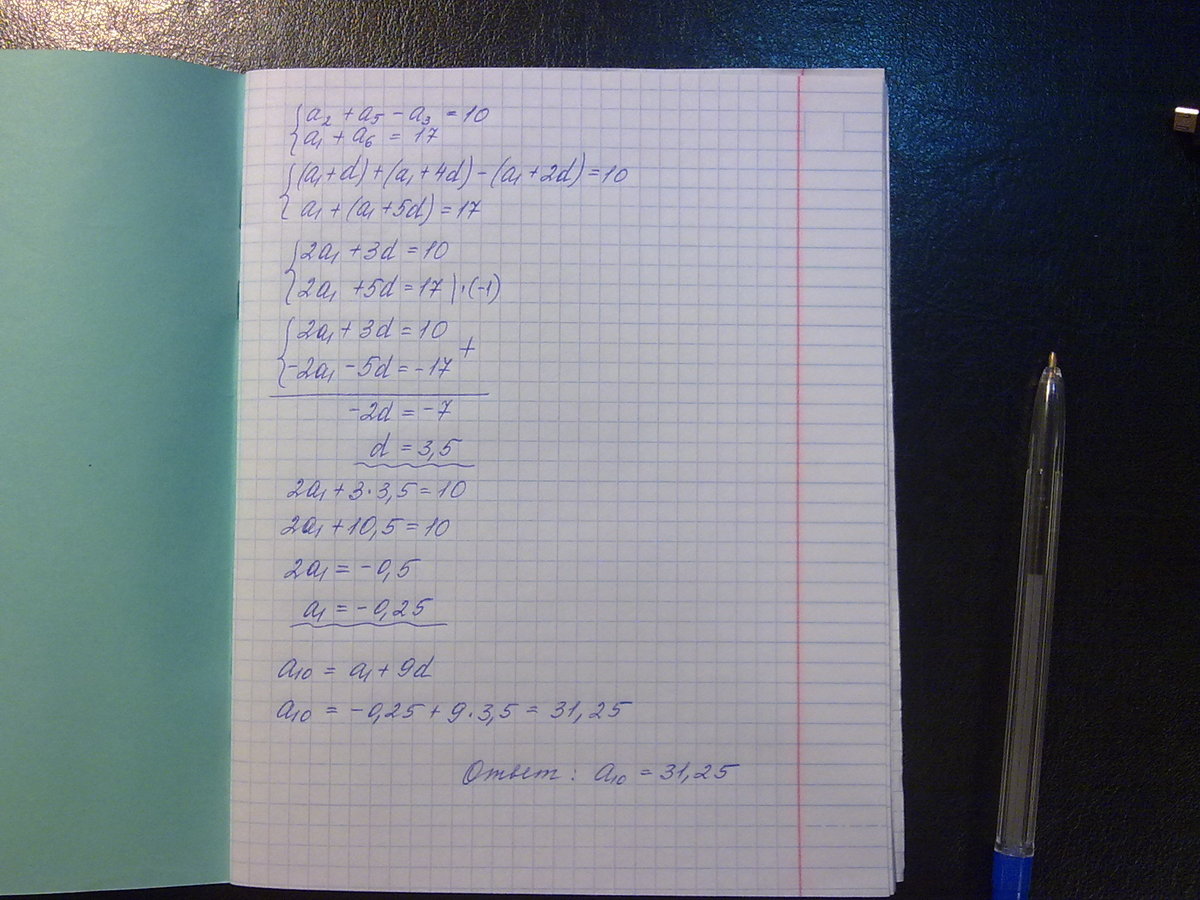 {a₂ + a₅ - a₃ = 10
{a₁ + a₆ = 17
{(a₁+d)+(a₁+4d)-(a₁+2d)=10
{a₁+(a₁+5d)=17
{2a₁+3d=10
{2a₁+5d=17 |·(-1)
{2a₁+3d=10
{-2a₁-5d=-17 +
-2d=-7
d=3,5
2a₁+3·3,5=10
2a₁+10,5=10
2a₁=-0,5
a₁=-0,25
a₁₀ = a₁+9d
a₁₀ = -0,25+9·3,5=31,25
Ответ: a₁₀ = 31,25